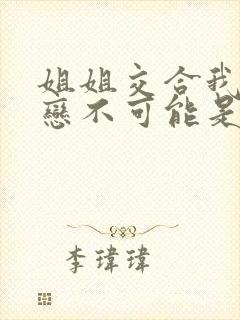 姐姐交合我
戀不可能是
李瑋瑋